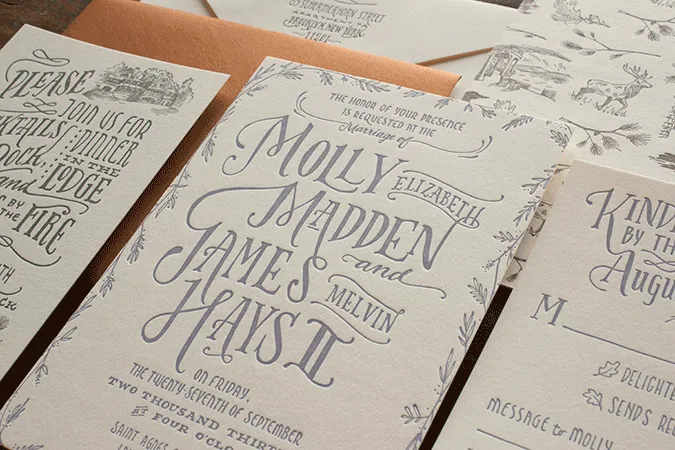 63 SCHERMERHORN STREET
APARTMENT
BROOKLYN NEW YORK
11201
PLEASE
JOIN US FOR
COCKTAILS
DINNER
DOCK,
IN THE
LODGE
and
BY
THE FIRE
THE HONOR OF YOUR PRESENCE
IS REQUESTED AT THE
Marriage of
MOLLY
ELIZABETH
MADDEN
and
JAMES
MELVIN
HAYS II
ON FRIDAY,
THE TWENTY-SEVENTH OF SEPTEMBER
TWO THOUSAND THIRTEEN
AT FOUR O'CLO
SAINT AGNES
KIND
BY TH
Augu
M
DELIGHTE
SENDS RE
MESSAGE to MOLLY